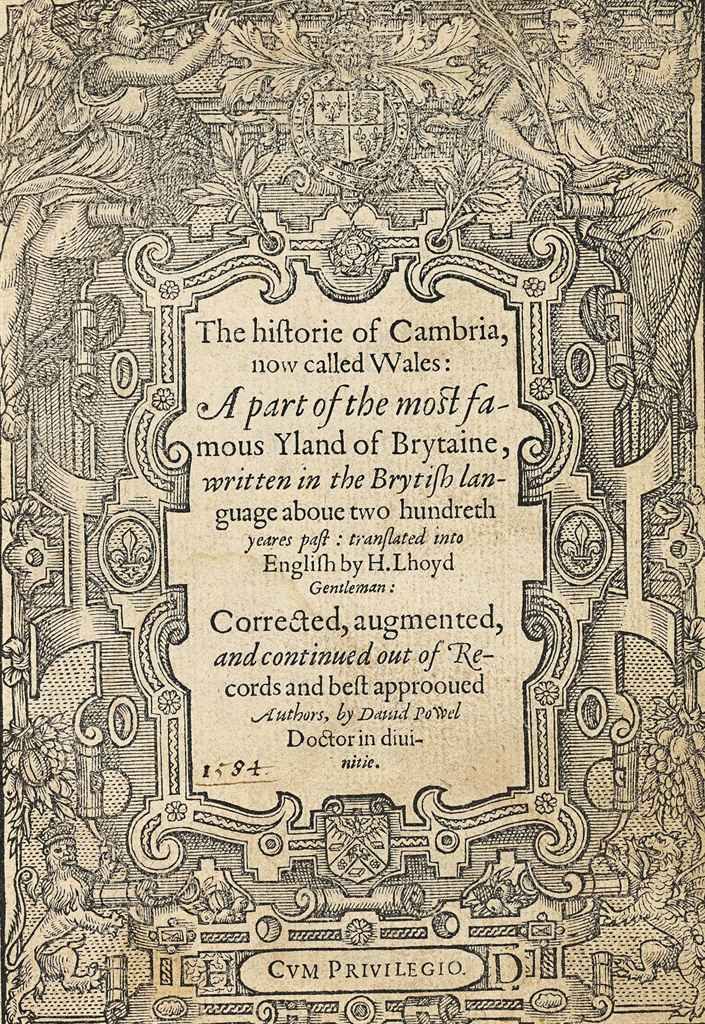 The hiſtorie of Cambria,
now called Wales:
A part of the moſt fa-
mous Yland of Brytaine,
written in the Brytiſh lan-
guage aboue two hundreth
yeares paſt : tranſlated into
Engliſh by H. Lhoyd
Gentleman:
Corrected, augmented,
and continued out of Re-
cords and beſt approoued
Authors, by Dauid Powel
Doctor in diui-
nitie.
1584.
H D
CVM PRIVILEGIO.